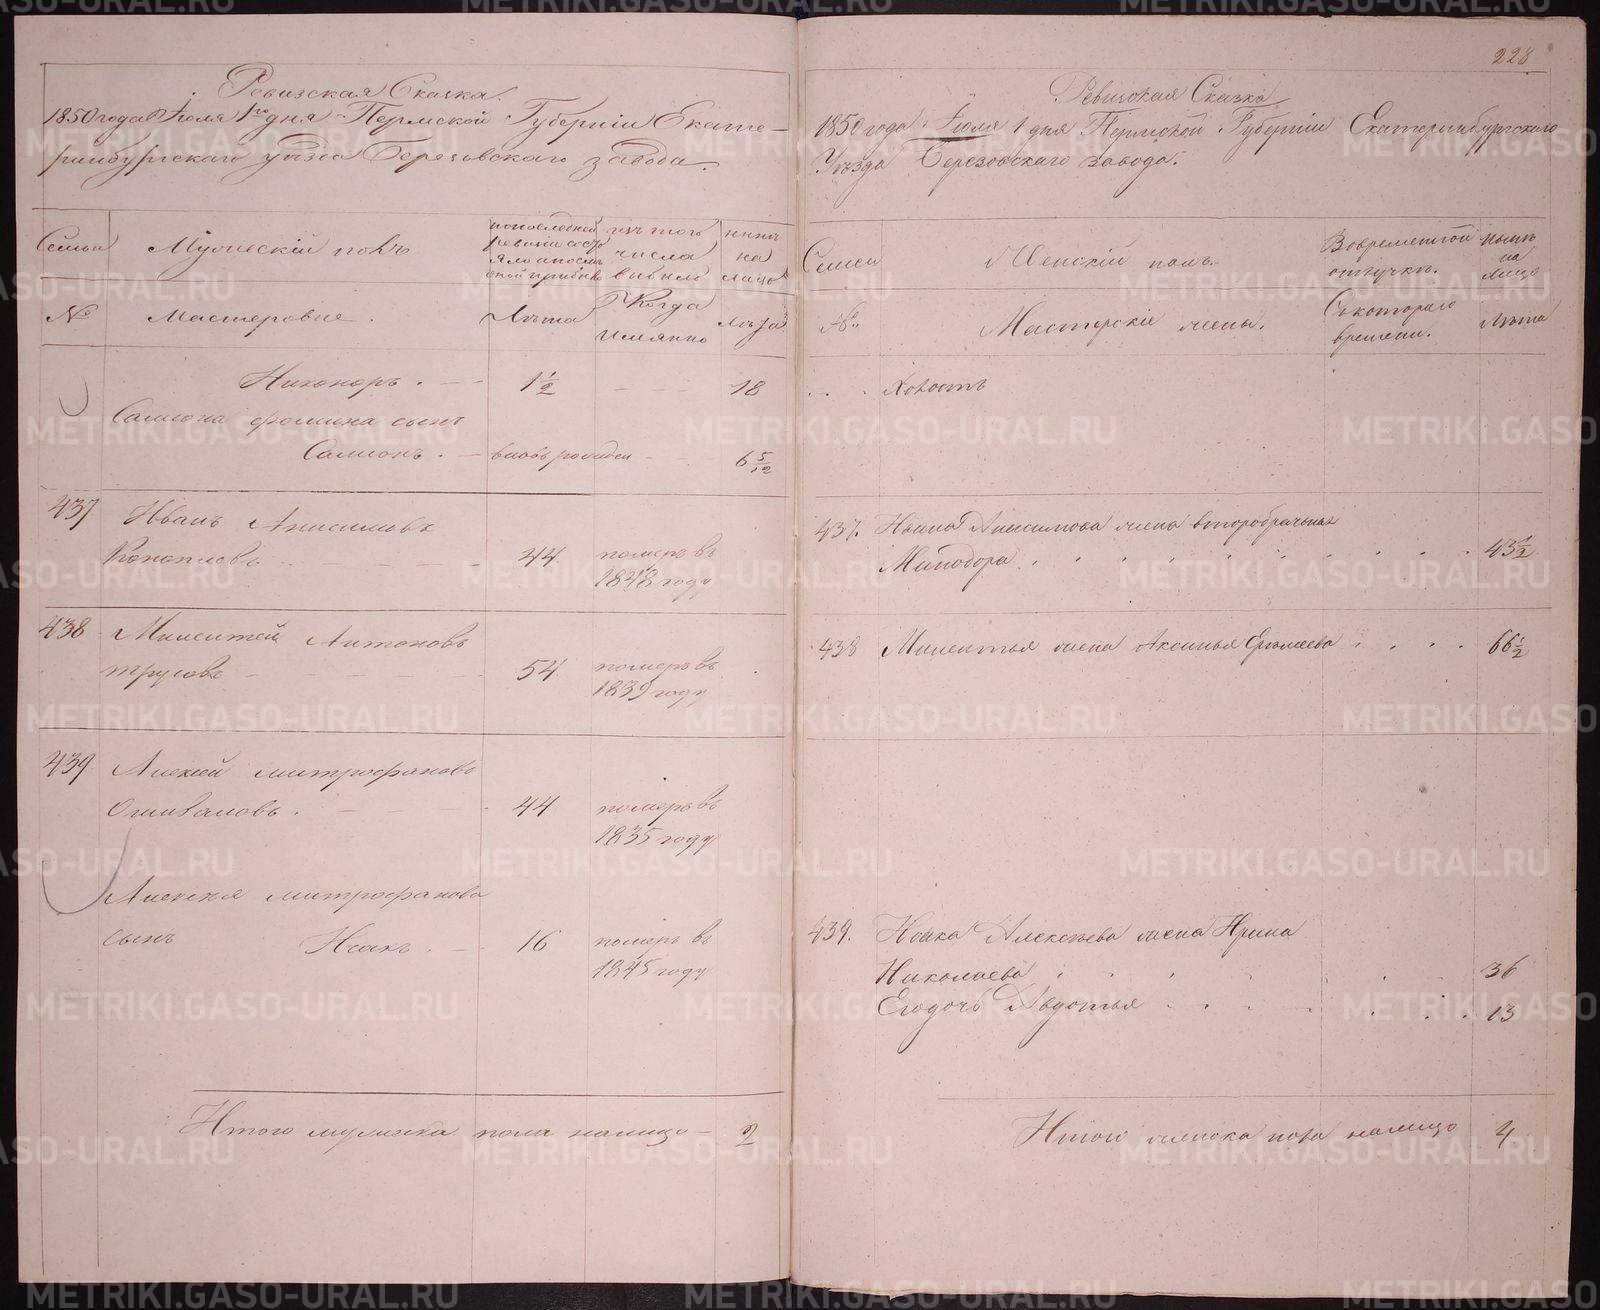 228
Ревизская Сказка.
1850 года Июля 1го дня Пермской Губернии Екате-
ринбургскаго уѣзда Березовскаго завода.
Семьи
Мужескій полъ
по последней
ревизии состо
яло и после
оной прибыло
изъ того
числа
выбыло
ныне
на
лицо
№
Мастеровые.
Лѣта
Когда
имянно
Лѣта
Никоноръ. 1½ 18
Самсона Фомина сынъ
Самсонъ. вновь рожден 6 5/12
437 Иванъ Анисимовъ
Конопаевъ 44 померъ въ
1848 году
438 Милентей Антоновъ
Трусовъ 54 померъ въ
1839 году
439 Алексей Митрофановъ
44 померъ въ
1835 году
Алексея Митрофанова
сынъ Исакъ. 16 померъ въ
1845 году
Итого мужеска пола налицо 2
Ревизская Сказка
1850 года Июля 1 дня Пермской Губернии Екатеринбургскаго
Уѣзда Березовскаго завода.
Семьи
Женскій полъ.
Во временной
отлучкѣ.
ныне
на
лицо
№.
Мастерскіе жены.
Съ котораго
времени.
Лѣта
Холостъ
437. Ивана Анисимова жена второбрачная
Минодора 43½
438 Милентья жена Аксинья 66½
439. Исака Алексѣева жена Ирина
Николаева 36
Егодочь Авдотья 13
Итого женска пола налицо 4
METRIKI.GASO-URAL.RU